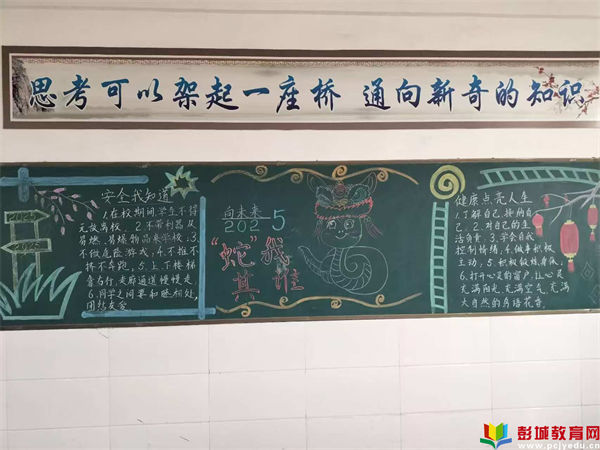 思考可以架起一座桥 通向新奇的知识
安全我知道
1.在校期间学生不得
元放离校，2.不带利器及
易燃、易爆物品来学校，3.
不做危险游戏，4.不推不
挤不奔跑，5.上下楼梯
靠右行，走廊通道慢慢走
6.同学之间要和睦相处，
团结友爱
2024
2025
向未来
2025
"蛇"我
其谁
健康点亮人生
1.了解自己，接纳自
己，2.对自己的生
活负责，3.学会自我
控制情绪，4.做事积极
主动，5.积极锻炼身体，
6.打开心灵的窗户，让心灵
充满阳光，充满空气，充满
大自然的鸟语花香。
彭城教育网
www.pcjyedu.cn